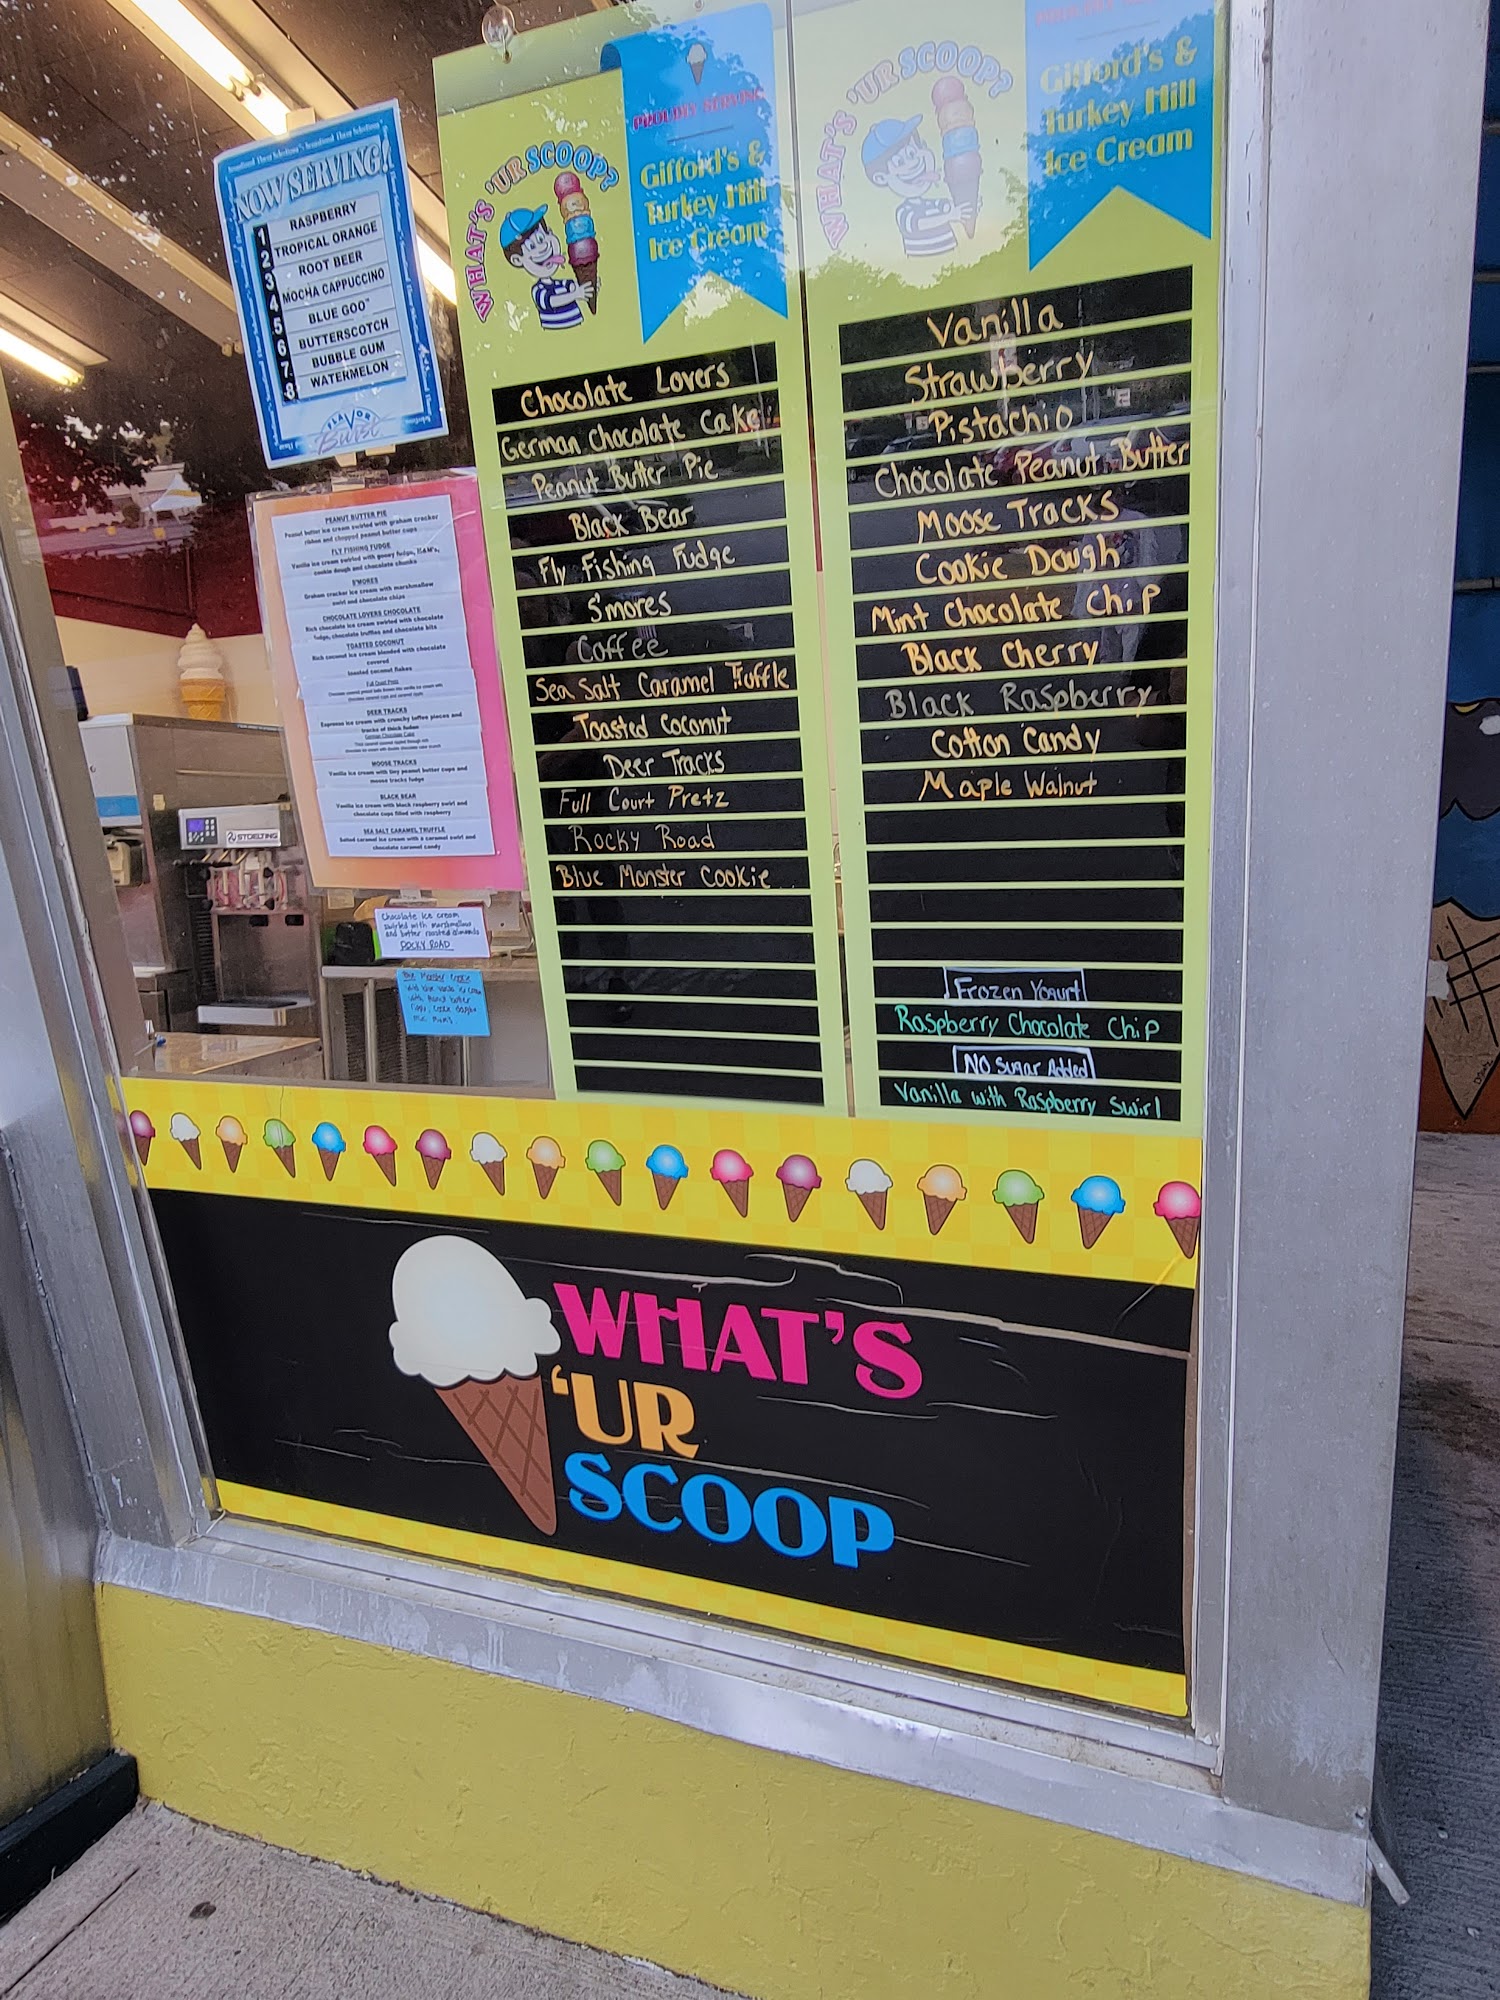 NOW SERVING!
1 RASPBERRY
2 TROPICAL ORANGE
3 ROOT BEER
4 MOCHA CAPPUCCINO
5 BLUE GOO™
6 BUTTERSCOTCH
7 BUBBLE GUM
8 WATERMELON
FLAVOR
Burst
PEANUT BUTTER PIE
Peanut butter ice cream swirled with graham cracker
ribbon and chopped peanut butter cups
FLY FISHING FUDGE
Vanilla ice cream swirled with gooey fudge, M&M's,
cookie dough and chocolate chunks
S'MORES
Graham cracker ice cream with marshmallow
swirl and chocolate chips
CHOCOLATE LOVERS CHOCOLATE
Rich chocolate ice cream swirled with chocolate
fudge, chocolate truffles and chocolate bits
TOASTED COCONUT
Rich coconut ice cream blended with chocolate
covered
toasted coconut flakes
Full Court Pretz
DEER TRACKS
Espresso ice cream with crunchy toffee pieces and
tracks of thick fudge
German Chocolate Cake
MOOSE TRACKS
Vanilla ice cream with tiny peanut butter cups and
moose tracks fudge
BLACK BEAR
Vanilla ice cream with black raspberry swirl and
chocolate cups filled with raspberry
SEA SALT CARAMEL TRUFFLE
Salted caramel ice cream with a caramel swirl and
chocolate caramel candy
STOELTING
Chocolate ice cream
swirled with marshmallow
and butter roasted almonds
ROCKY ROAD
Blue Monster Cookie
WHAT'S 'UR SCOOP?
PROUDLY SERVING
Gifford's &
Turkey Hill
Ice Cream
Chocolate Lovers
German Chocolate Cake
Peanut Butter Pie
Black Bear
Fly Fishing Fudge
S'mores
Coffee
Sea Salt Caramel Truffle
Toasted Coconut
Deer Tracks
Full Court Pretz
Rocky Road
Blue Monster Cookie
WHAT'S 'UR SCOOP?
Gifford's &
Turkey Hill
Ice Cream
Vanilla
Strawberry
Pistachio
Chocolate Peanut Butter
Moose Tracks
Cookie Dough
Mint Chocolate Chip
Black Cherry
Black Raspberry
Cotton Candy
Maple Walnut
Frozen Yogurt
Raspberry Chocolate Chip
No Sugar Added
Vanilla with Raspberry Swirl
WHAT'S
'UR
SCOOP